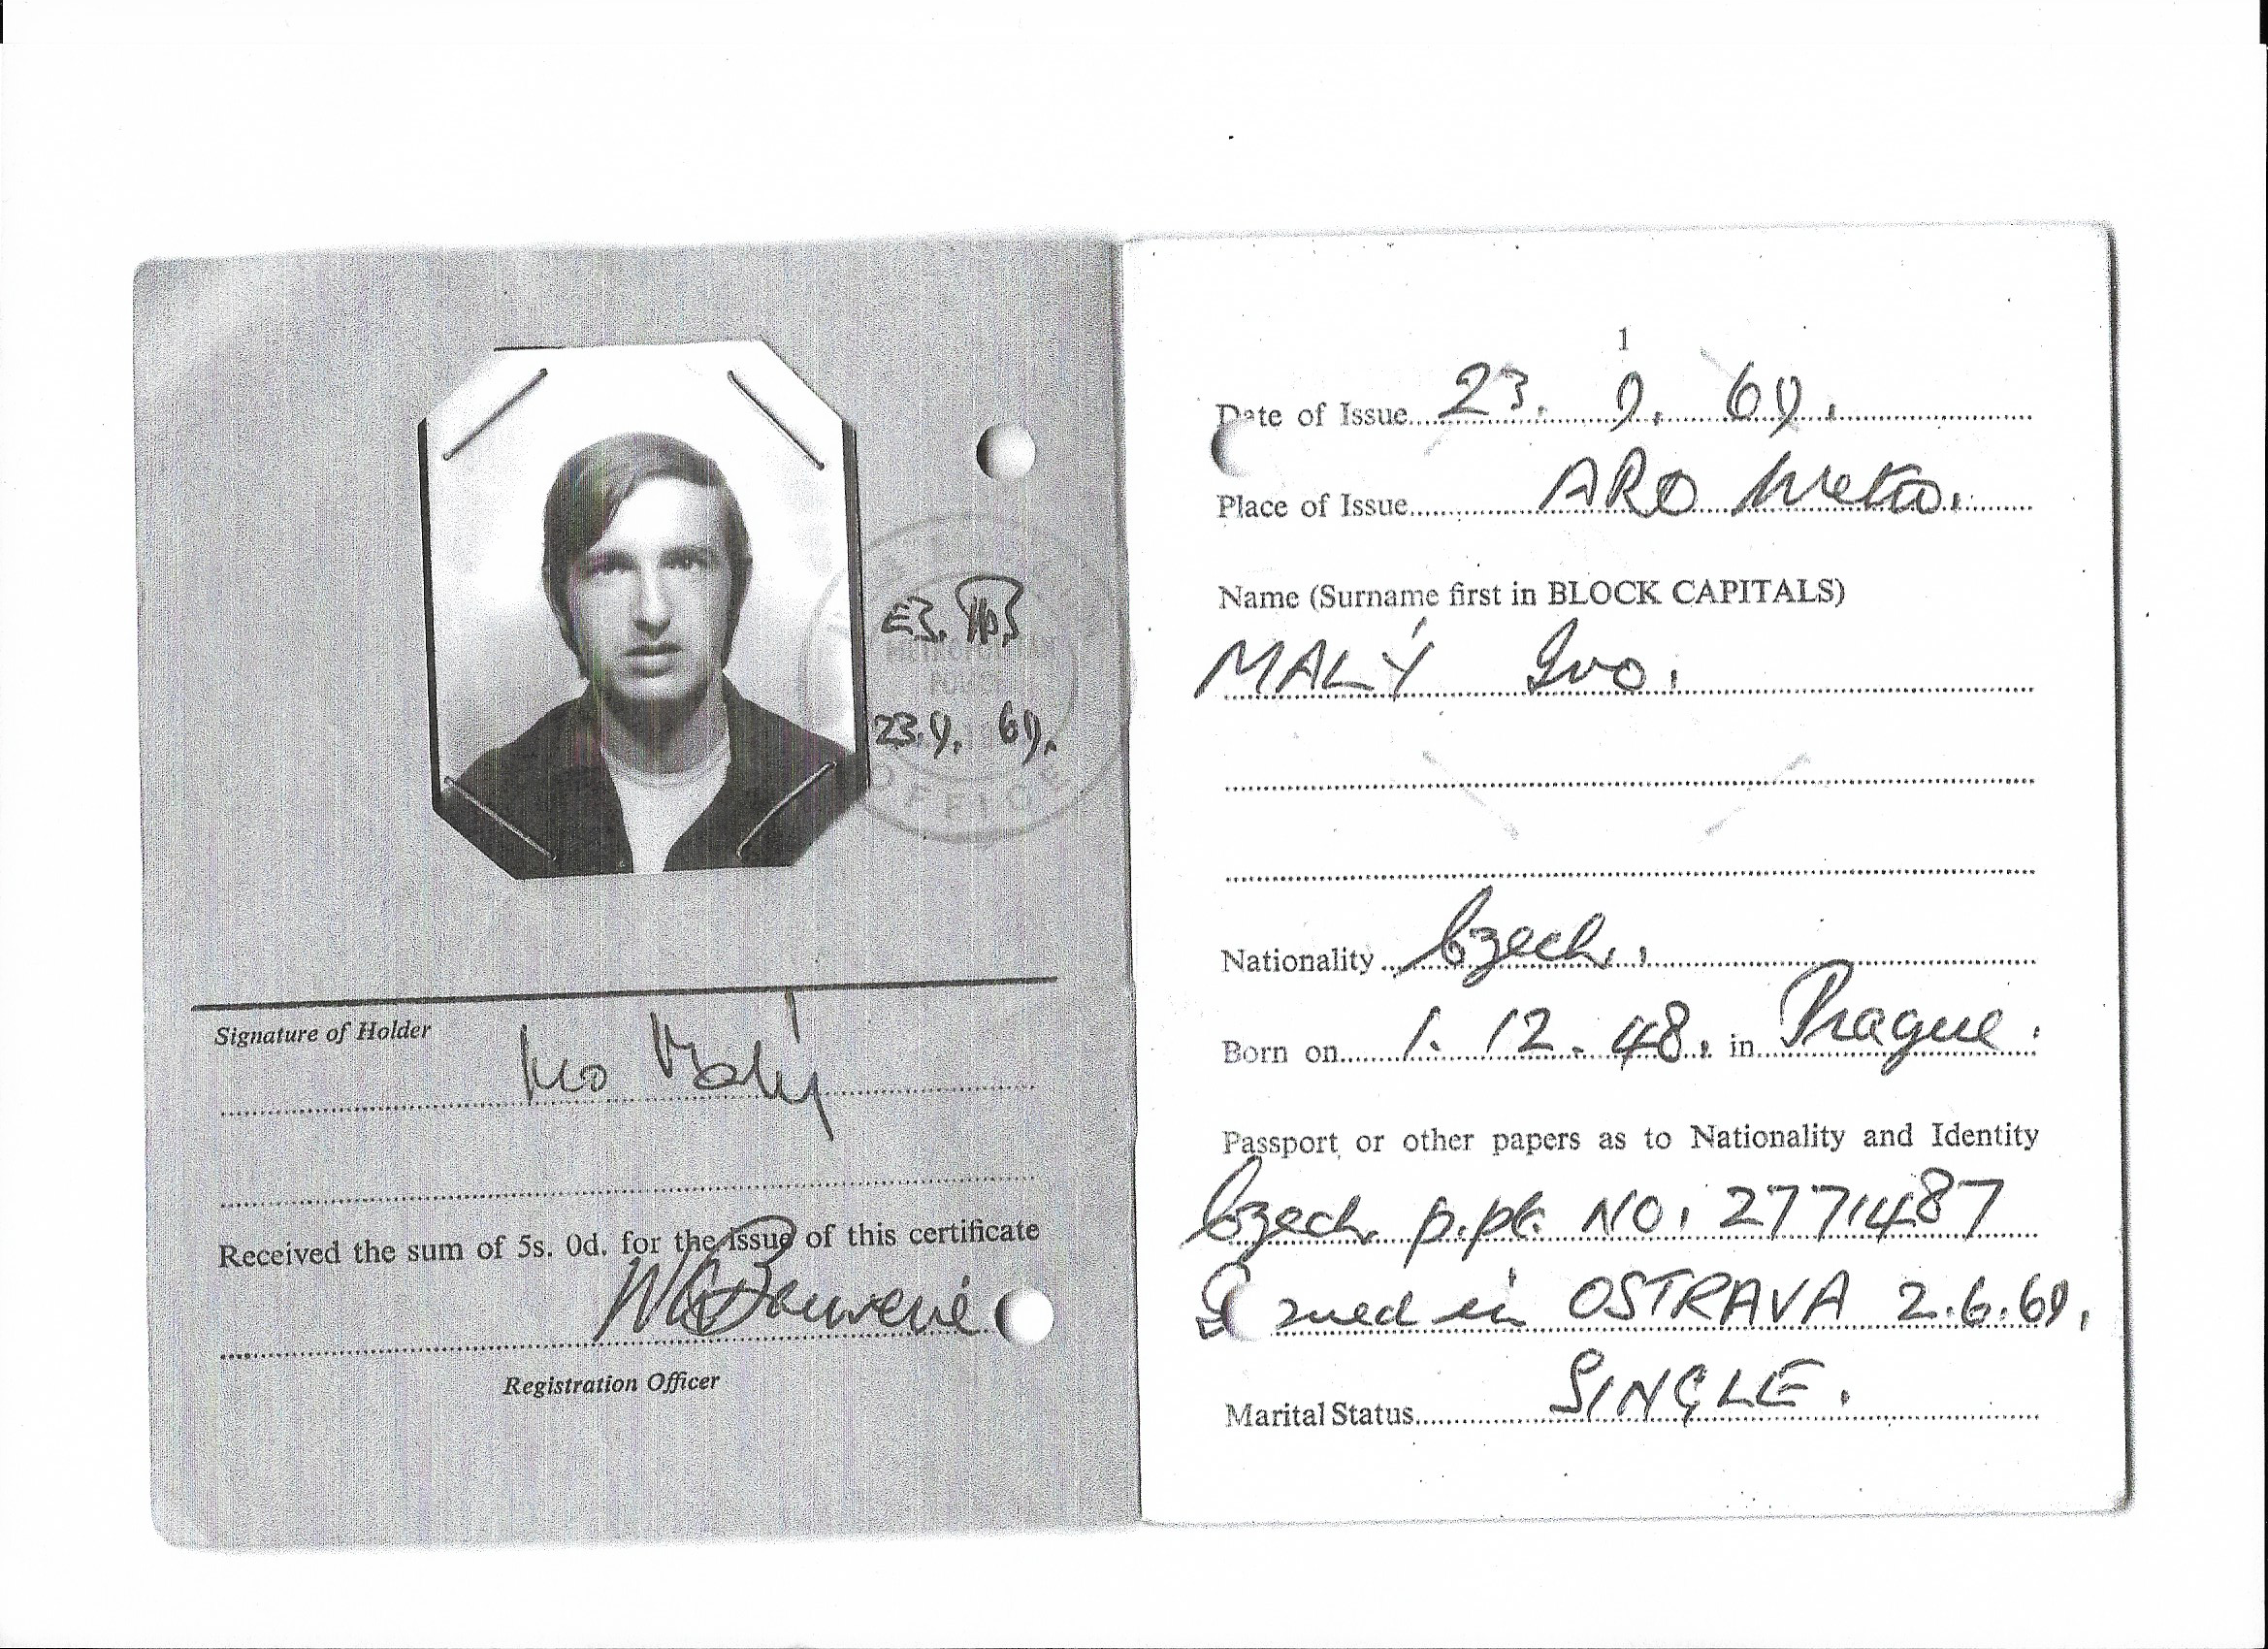 METROPOLITAN
POLICE
23.9. 69.
OFFICE
Signature of Holder
Ivo Malý
Received the sum of 5s. 0d. for the issue of this certificate
Registration Officer
1
Date of Issue 23. 9. 69.
Place of Issue ARO Metro.
Name (Surname first in BLOCK CAPITALS)
MALÝ Ivo.
Nationality Czech.
Born on 1. 12. 48. in Prague.
Passport or other papers as to Nationality and Identity
Czech p.pt. NO. 2771487
Issued in OSTRAVA 2.6.69.
Marital Status SINGLE.